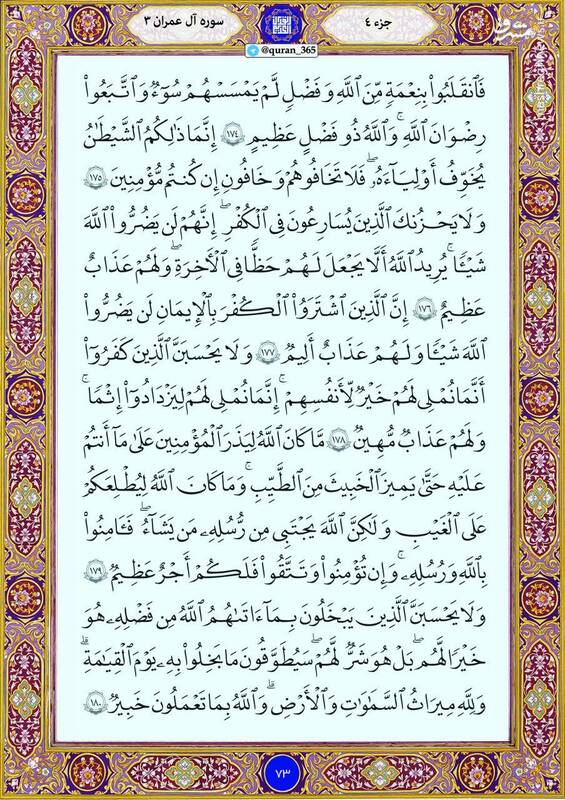 سوره آل عمران ۳
جزء ٤
@quran_365
فَٱنقَلَبُوا۟ بِنِعْمَةٍ مِّنَ ٱللَّهِ وَفَضْلٍ لَّمْ يَمْسَسْهُمْ سُوٓءٌ وَٱتَّبَعُوا۟
رِضْوَانَ ٱللَّهِ ۗ وَٱللَّهُ ذُو فَضْلٍ عَظِيمٍ ١٧٤ إِنَّمَا ذَٰلِكُمُ ٱلشَّيْطَٰنُ
يُخَوِّفُ أَوْلِيَآءَهُۥ فَلَا تَخَافُوهُمْ وَخَافُونِ إِن كُنتُم مُّؤْمِنِينَ ١٧٥
وَلَا يَحْزُنكَ ٱلَّذِينَ يُسَارِعُونَ فِى ٱلْكُفْرِ ۖ إِنَّهُمْ لَن يَضُرُّوا۟ ٱللَّهَ
شَيْـًٔا ۗ يُرِيدُ ٱللَّهُ أَلَّا يَجْعَلَ لَهُمْ حَظًّا فِى ٱلْـَٔاخِرَةِ ۖ وَلَهُمْ عَذَابٌ
عَظِيمٌ ١٧٦ إِنَّ ٱلَّذِينَ ٱشْتَرَوُا۟ ٱلْكُفْرَ بِٱلْإِيمَانِ لَن يَضُرُّوا۟
ٱللَّهَ شَيْـًٔا وَلَهُمْ عَذَابٌ أَلِيمٌ ١٧٧ وَلَا يَحْسَبَنَّ ٱلَّذِينَ كَفَرُوٓا۟
أَنَّمَا نُمْلِى لَهُمْ خَيْرٌ لِّأَنفُسِهِمْ ۚ إِنَّمَا نُمْلِى لَهُمْ لِيَزْدَادُوٓا۟ إِثْمًا ۚ
وَلَهُمْ عَذَابٌ مُّهِينٌ ١٧٨ مَّا كَانَ ٱللَّهُ لِيَذَرَ ٱلْمُؤْمِنِينَ عَلَىٰ مَآ أَنتُمْ
عَلَيْهِ حَتَّىٰ يَمِيزَ ٱلْخَبِيثَ مِنَ ٱلطَّيِّبِ ۗ وَمَا كَانَ ٱللَّهُ لِيُطْلِعَكُمْ
عَلَى ٱلْغَيْبِ وَلَٰكِنَّ ٱللَّهَ يَجْتَبِى مِن رُّسُلِهِۦ مَن يَشَآءُ ۖ فَـَٔامِنُوا۟
بِٱللَّهِ وَرُسُلِهِۦ ۚ وَإِن تُؤْمِنُوا۟ وَتَتَّقُوا۟ فَلَكُمْ أَجْرٌ عَظِيمٌ ١٧٩
وَلَا يَحْسَبَنَّ ٱلَّذِينَ يَبْخَلُونَ بِمَآ ءَاتَىٰهُمُ ٱللَّهُ مِن فَضْلِهِۦ هُوَ
خَيْرًا لَّهُم ۖ بَلْ هُوَ شَرٌّ لَّهُمْ ۖ سَيُطَوَّقُونَ مَا بَخِلُوا۟ بِهِۦ يَوْمَ ٱلْقِيَٰمَةِ ۗ
وَلِلَّهِ مِيرَٰثُ ٱلسَّمَٰوَٰتِ وَٱلْأَرْضِ ۗ وَٱللَّهُ بِمَا تَعْمَلُونَ خَبِيرٌ ١٨٠
٧٣